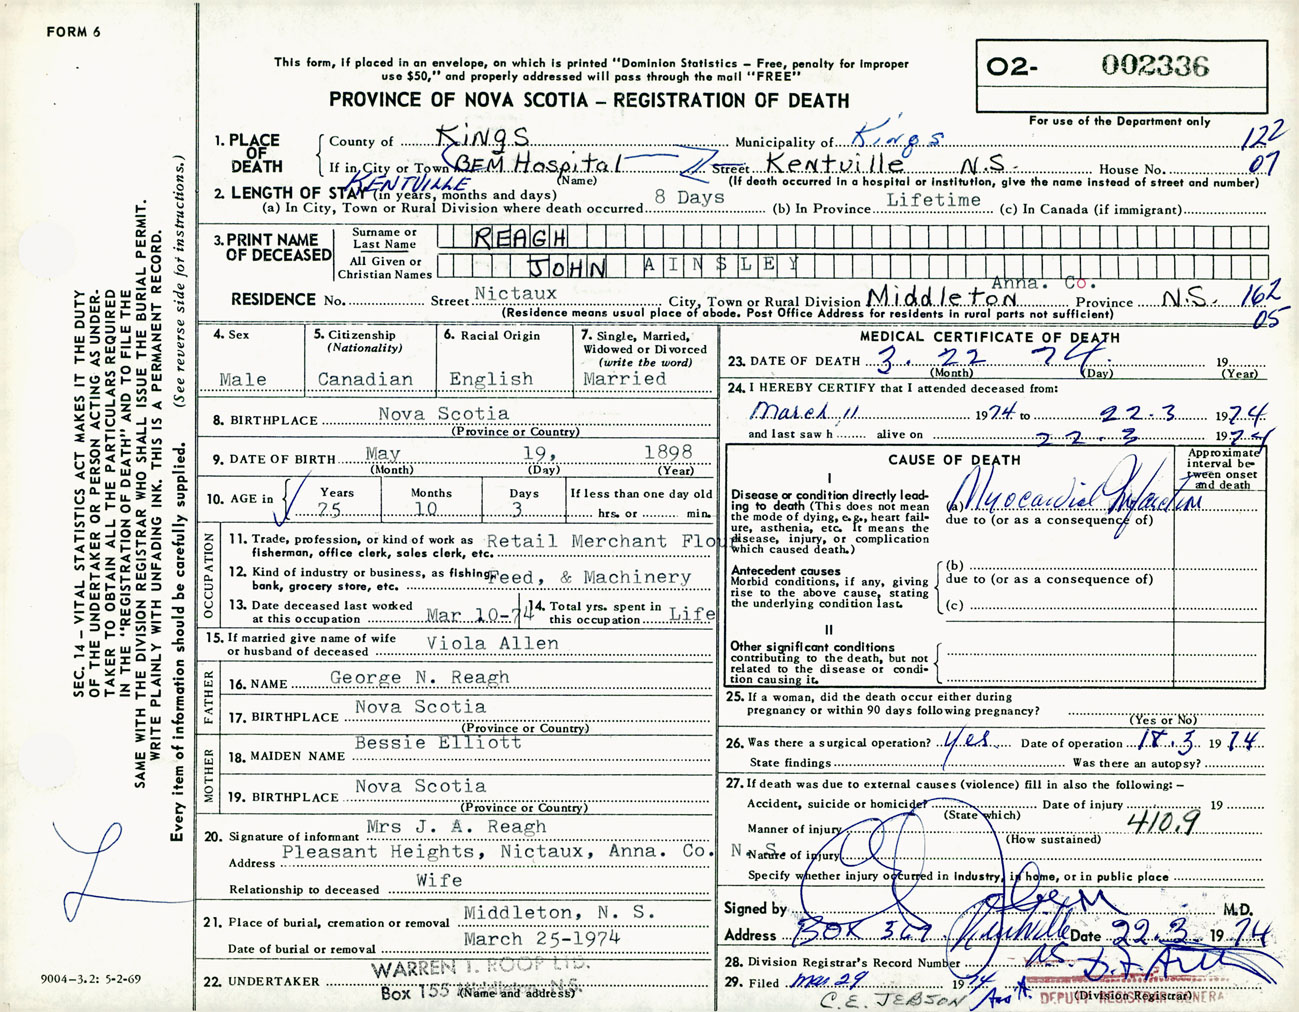 FORM 6
This form, if placed in an envelope, on which is printed "Dominion Statistics – Free, penalty for improper
use $50," and properly addressed will pass through the mail "FREE"
PROVINCE OF NOVA SCOTIA – REGISTRATION OF DEATH
02- 002336
For use of the Department only
1. PLACE OF DEATH County of Kings Municipality of Kings 122
If in City or Town BEM Hospital Street Kentville N.S. House No. 07
KENTVILLE (Name) (If death occurred in a hospital or institution, give the name instead of street and number)
2. LENGTH OF STAY (in years, months and days)
(a) In City, Town or Rural Division where death occurred 8 Days (b) In Province Lifetime (c) In Canada (if immigrant)
3. PRINT NAME OF DECEASED Surname or Last Name REAGH
All Given or Christian Names JOHN AINSLEY
Anna. Co.
RESIDENCE No. Street Nictaux City, Town or Rural Division Middleton Province N.S. 162
(Residence means usual place of abode. Post Office Address for residents in rural parts not sufficient) 05
4. Sex Male
5. Citizenship (Nationality) Canadian
6. Racial Origin English
7. Single, Married, Widowed or Divorced (write the word) Married
8. BIRTHPLACE Nova Scotia
(Province or Country)
9. DATE OF BIRTH May 19, 1898
(Month) (Day) (Year)
10. AGE in Years Months Days If less than one day old
75 10 3 hrs. or min.
OCCUPATION
11. Trade, profession, or kind of work as fisherman, office clerk, sales clerk, etc. Retail Merchant Flour
12. Kind of industry or business, as fishing, bank, grocery store, etc. Feed, & Machinery
13. Date deceased last worked at this occupation Mar 10-74
14. Total yrs. spent in this occupation Life
15. If married give name of wife or husband of deceased Viola Allen
FATHER
16. NAME George N. Reagh
17. BIRTHPLACE Nova Scotia
(Province or Country)
MOTHER
18. MAIDEN NAME Bessie Elliott
19. BIRTHPLACE Nova Scotia
(Province or Country)
20. Signature of informant Mrs J. A. Reagh
Address Pleasant Heights, Nictaux, Anna. Co. N. S.
Relationship to deceased Wife
21. Place of burial, cremation or removal Middleton, N. S.
Date of burial or removal March 25-1974
22. UNDERTAKER WARREN T. ROOP LTD.
Box 155 Middleton, N.S.
(Name and address)
MEDICAL CERTIFICATE OF DEATH
23. DATE OF DEATH 3. 22 74. 19
(Month) (Day) (Year)
24. I HEREBY CERTIFY that I attended deceased from:
March 11 1974 to 22.3 1974
and last saw h alive on 22.3 1974
CAUSE OF DEATH
Approximate interval between onset and death
I
Disease or condition directly leading to death (This does not mean the mode of dying, e.g., heart failure, asthenia, etc. It means the disease, injury, or complication which caused death.)
(a) Myocardial Infarction
due to (or as a consequence of)
Antecedent causes
Morbid conditions, if any, giving rise to the above cause, stating the underlying condition last.
(b)
due to (or as a consequence of)
(c)
II
Other significant conditions
contributing to the death, but not related to the disease or condition causing it.
25. If a woman, did the death occur either during
pregnancy or within 90 days following pregnancy?
(Yes or No)
26. Was there a surgical operation? yes Date of operation 18.3 1974
State findings Was there an autopsy?
27. If death was due to external causes (violence) fill in also the following: –
Accident, suicide or homicide? Date of injury 19
(State which)
Manner of injury 410.9
(How sustained)
Nature of injury
Specify whether injury occurred in Industry, in home, or in public place
Signed by M.D.
Address BOX 369 Kentville Date 22.3. 1974
N.S.
28. Division Registrar's Record Number
29. Filed Mar 29 1974
(Division Registrar)
C.E. JEBSON
DEPUTY REGISTRAR GENERA
SEC. 14 – VITAL STATISTICS ACT MAKES IT THE DUTY
OF THE UNDERTAKER OR PERSON ACTING AS UNDER-
TAKER TO OBTAIN ALL THE PARTICULARS REQUIRED
IN THE "REGISTRATION OF DEATH" AND TO FILE THE
SAME WITH THE DIVISION REGISTRAR WHO SHALL ISSUE THE BURIAL PERMIT.
WRITE PLAINLY WITH UNFADING INK. THIS IS A PERMANENT RECORD.
Every item of information should be carefully supplied. (See reverse side for instructions.)
9004–3.2: 5-2-69